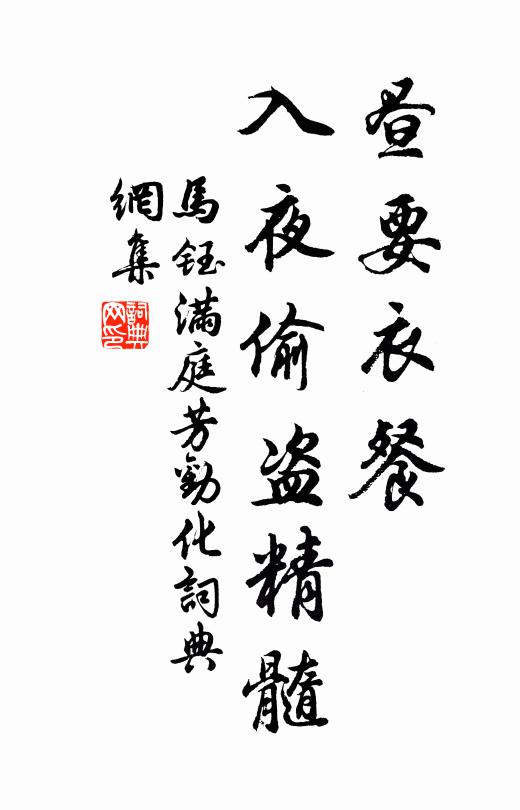 昼要衣餐
入夜偷盗精髓
馬鈺滿庭芳勸化詞典
網集
詞典
网印